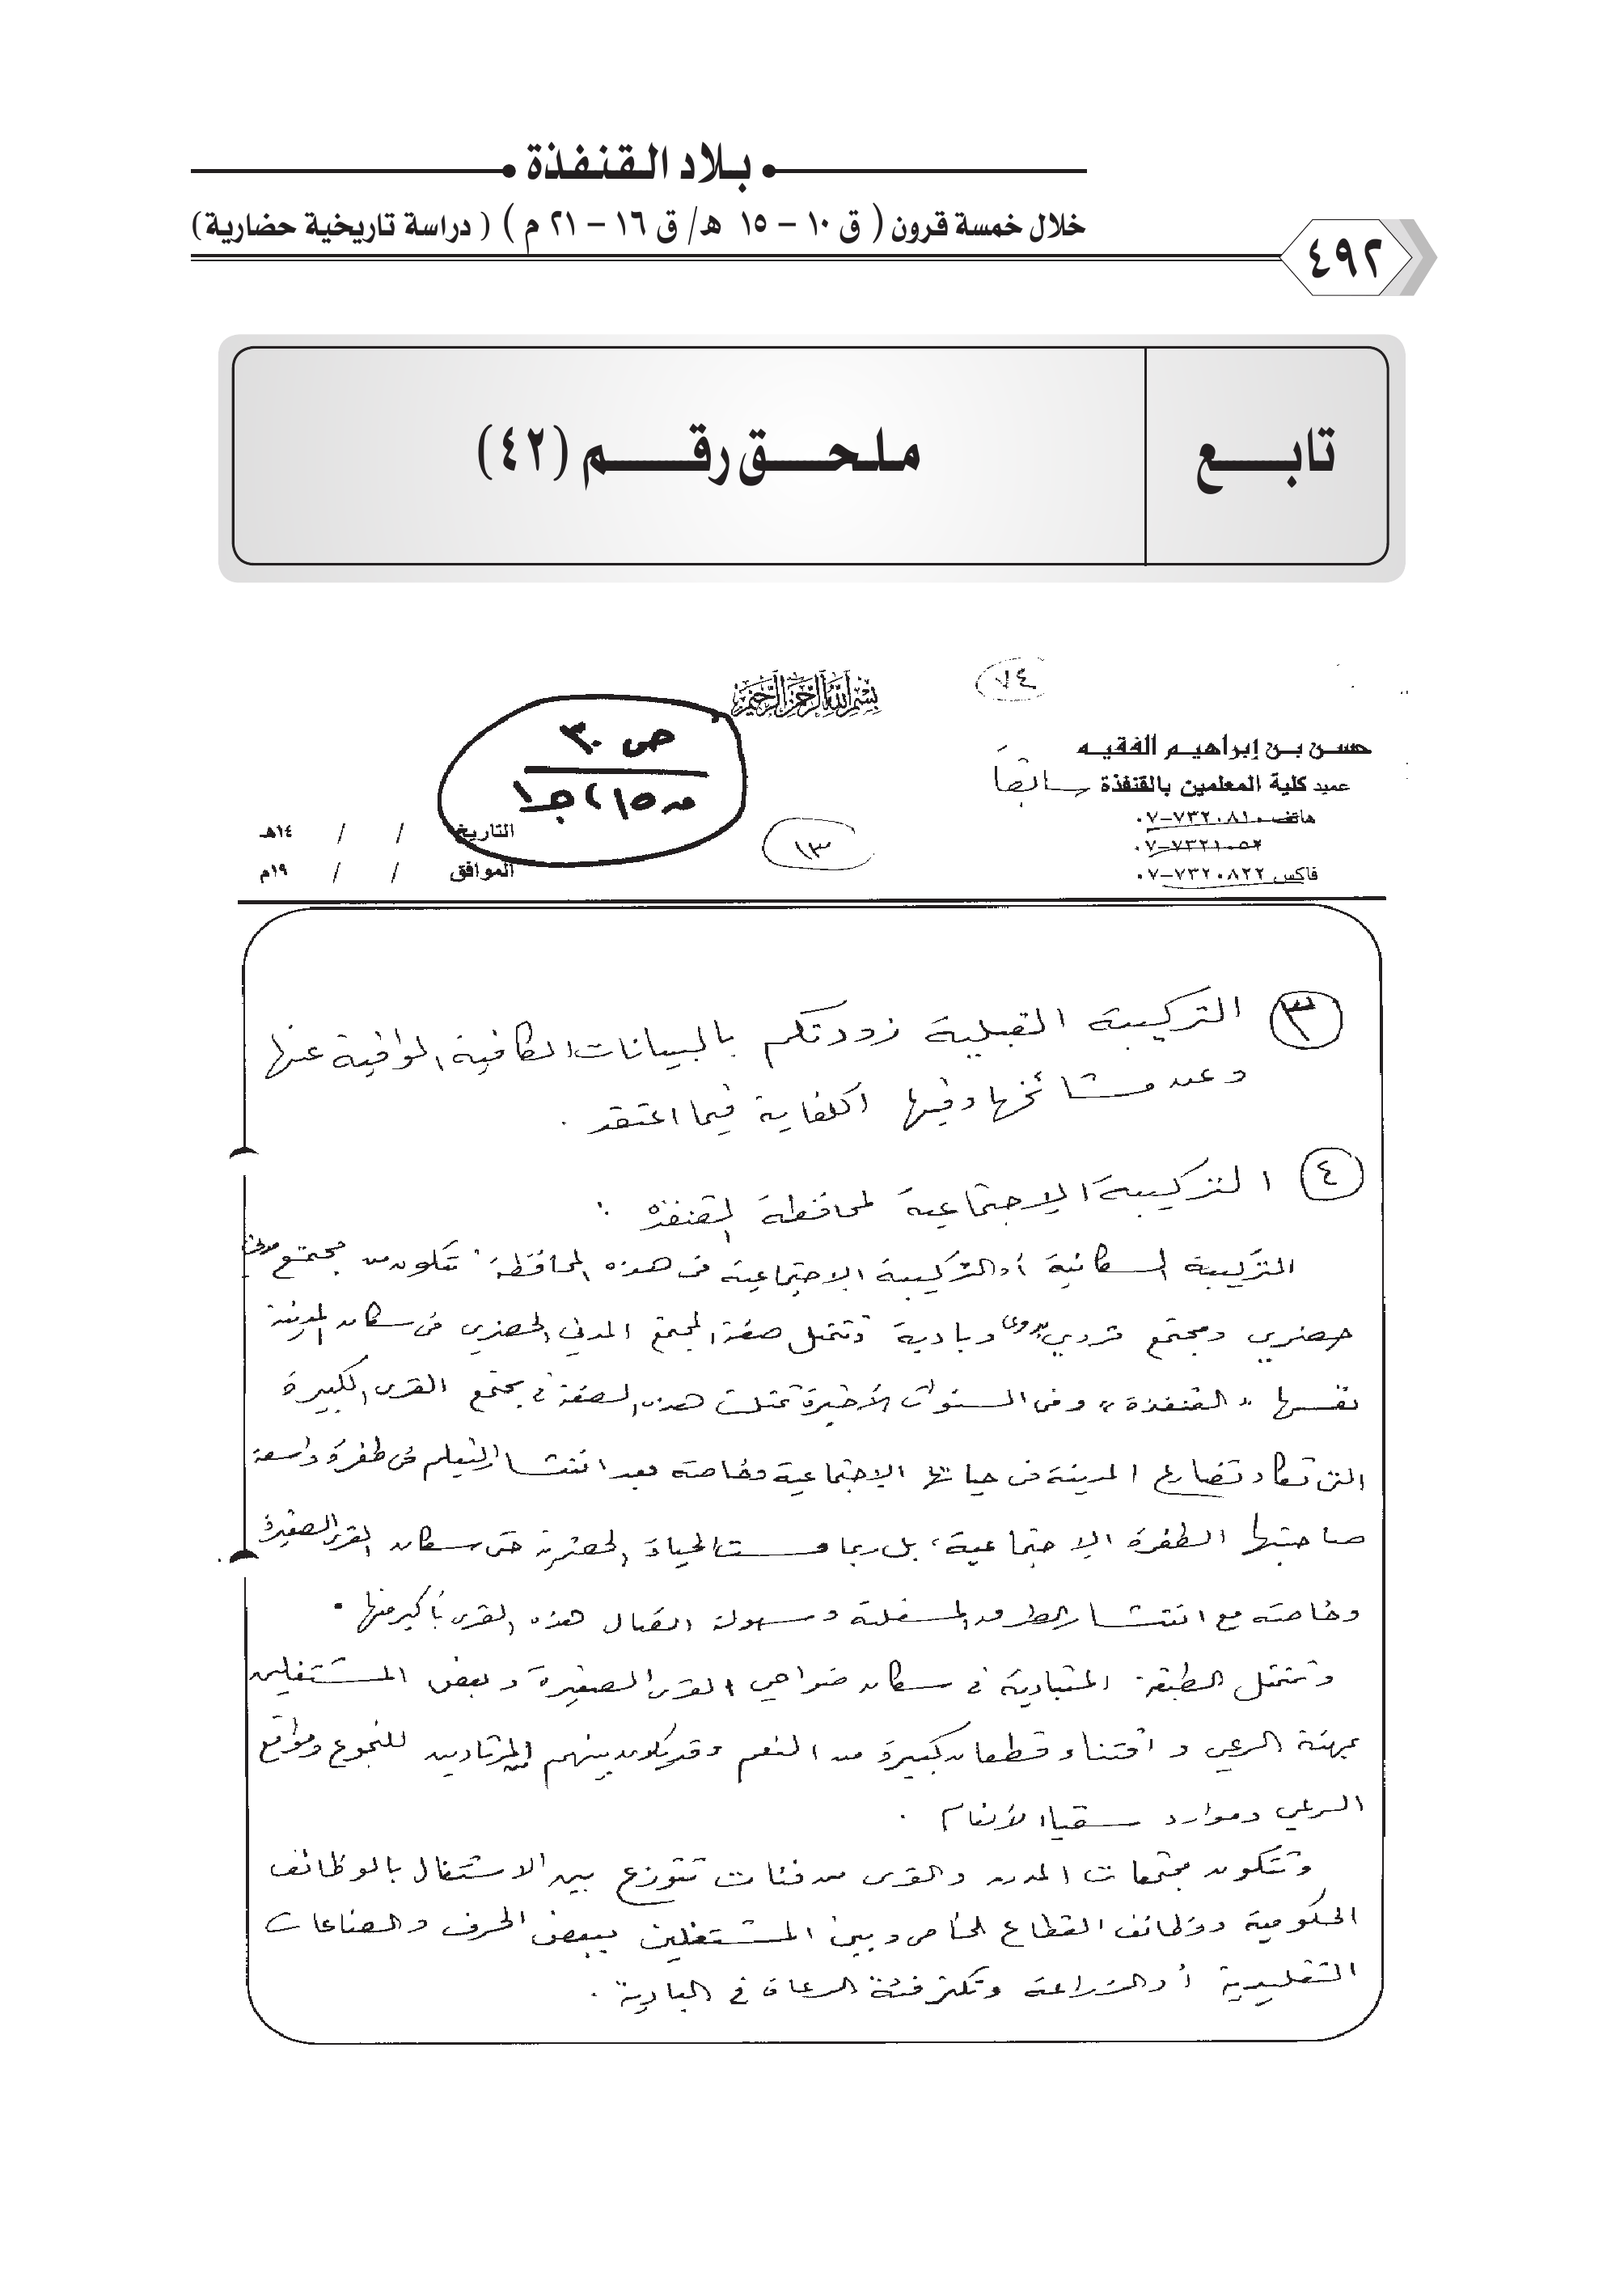 بلاد القنفذة
خلال خمسة قرون ( ق ١٠ – ١٥ هـ/ ق ١٦ – ٢١ م ) ( دراسة تاريخية حضارية)
٤٩٢
تابع
ملحق رقم (٤٢)
بسم الله الرحمن الرحيم
٧٤
ص ٣٠
حسن بن إبراهيم الفقيه
عميد كلية المعلمين بالقنفذة سابقاً
هاتف ٧٣٢٠٨١٠-٠٧
٧٣٢١٠٥٢-٠٧
فاكس ٧٣٢٠٨٢٢-٠٧
١٣
التاريخ / / ١٤هـ
الموافق / / ١٩م
٣ التركيبة القبلية زودتكم بالبيانات الكافية الوافية عنها
وعن مشائخها وفيها الكفاية فيما اعتقد .
٤ التركيبة الاجتماعية لمحافظة القنفذة :
التركيبة السكانية أو التركيبة الاجتماعية في هذه المحافظة تتكون من مجتمع مدني
حضري ومجتمع قروي بدوي وبادية وتتمثل صفة المجتمع المدني الحضري في سكان المدينة
نفسها " القنفذة " وفي السنوات الأخيرة تمثلت هذه الصفة في مجتمع القرى الكبيرة
التي تكاد تضارع المدينة في حياتها الاجتماعية وخاصة بعد انتشار التعليم في طفرة واسعة
صاحبتها الطفرة الاجتماعية، بل ربما مست الحياة الحضرية حتى سكان القرى الصغيرة
وخاصة مع انتشار الطرق المسفلتة وسهولة اتصال هذه القرى بأكبر منها .
وتتمثل الطبقة المتبادية في سكان ضواحي القرى الصغيرة وبعض المشتغلين
بمهنة الرعي واقتناء قطعان كبيرة من النعم وقد يكون بينهم المرتادين للنجوع ومواقع
الرعي وموارد سقيا الأنعام .
وتتكون مجتمعات المدن والقرى من فئات تتوزع بين الاشتغال بالوظائف
الحكومية ووظائف القطاع الخاص وبين المشتغلين ببعض الحرف والصناعات
التقليدية أو الزراعة وتكثر فئة الرعاة في البادية .